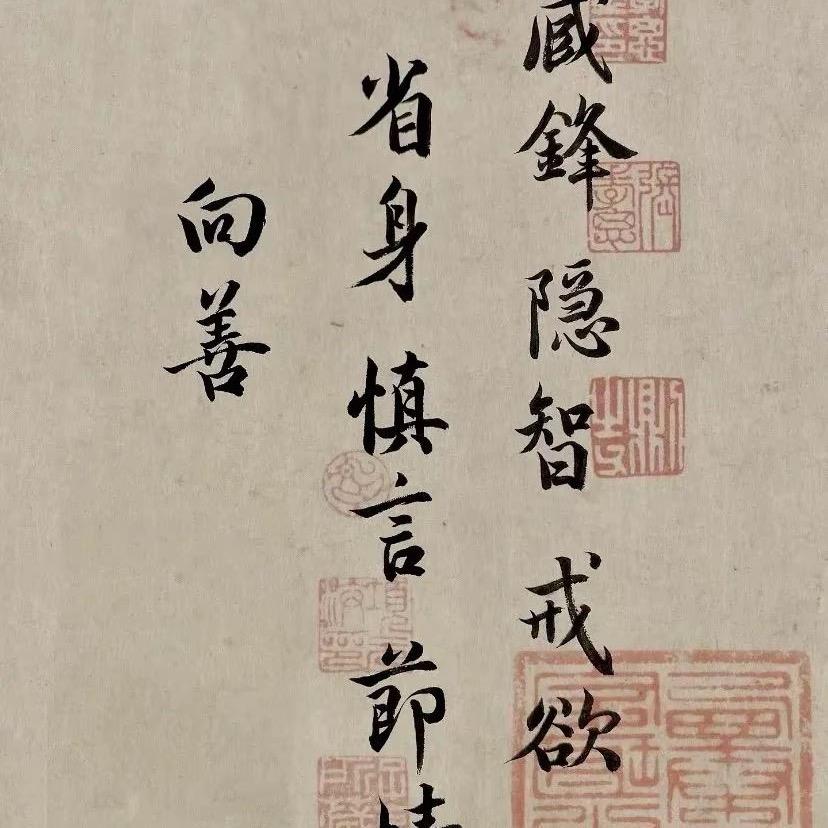 藏鋒隐智戒欲
省身慎言節情
向善